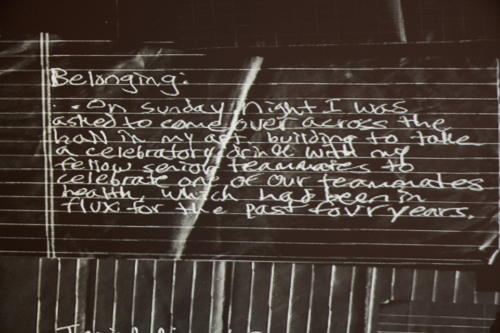 Belonging:
. On sunday night I was
asked to come over across the
hall in my apt. building to take
a celebratory drink with my
fellow senior teammates to
celebrate one of our teammates
health, which had been in
flux for the past four years.